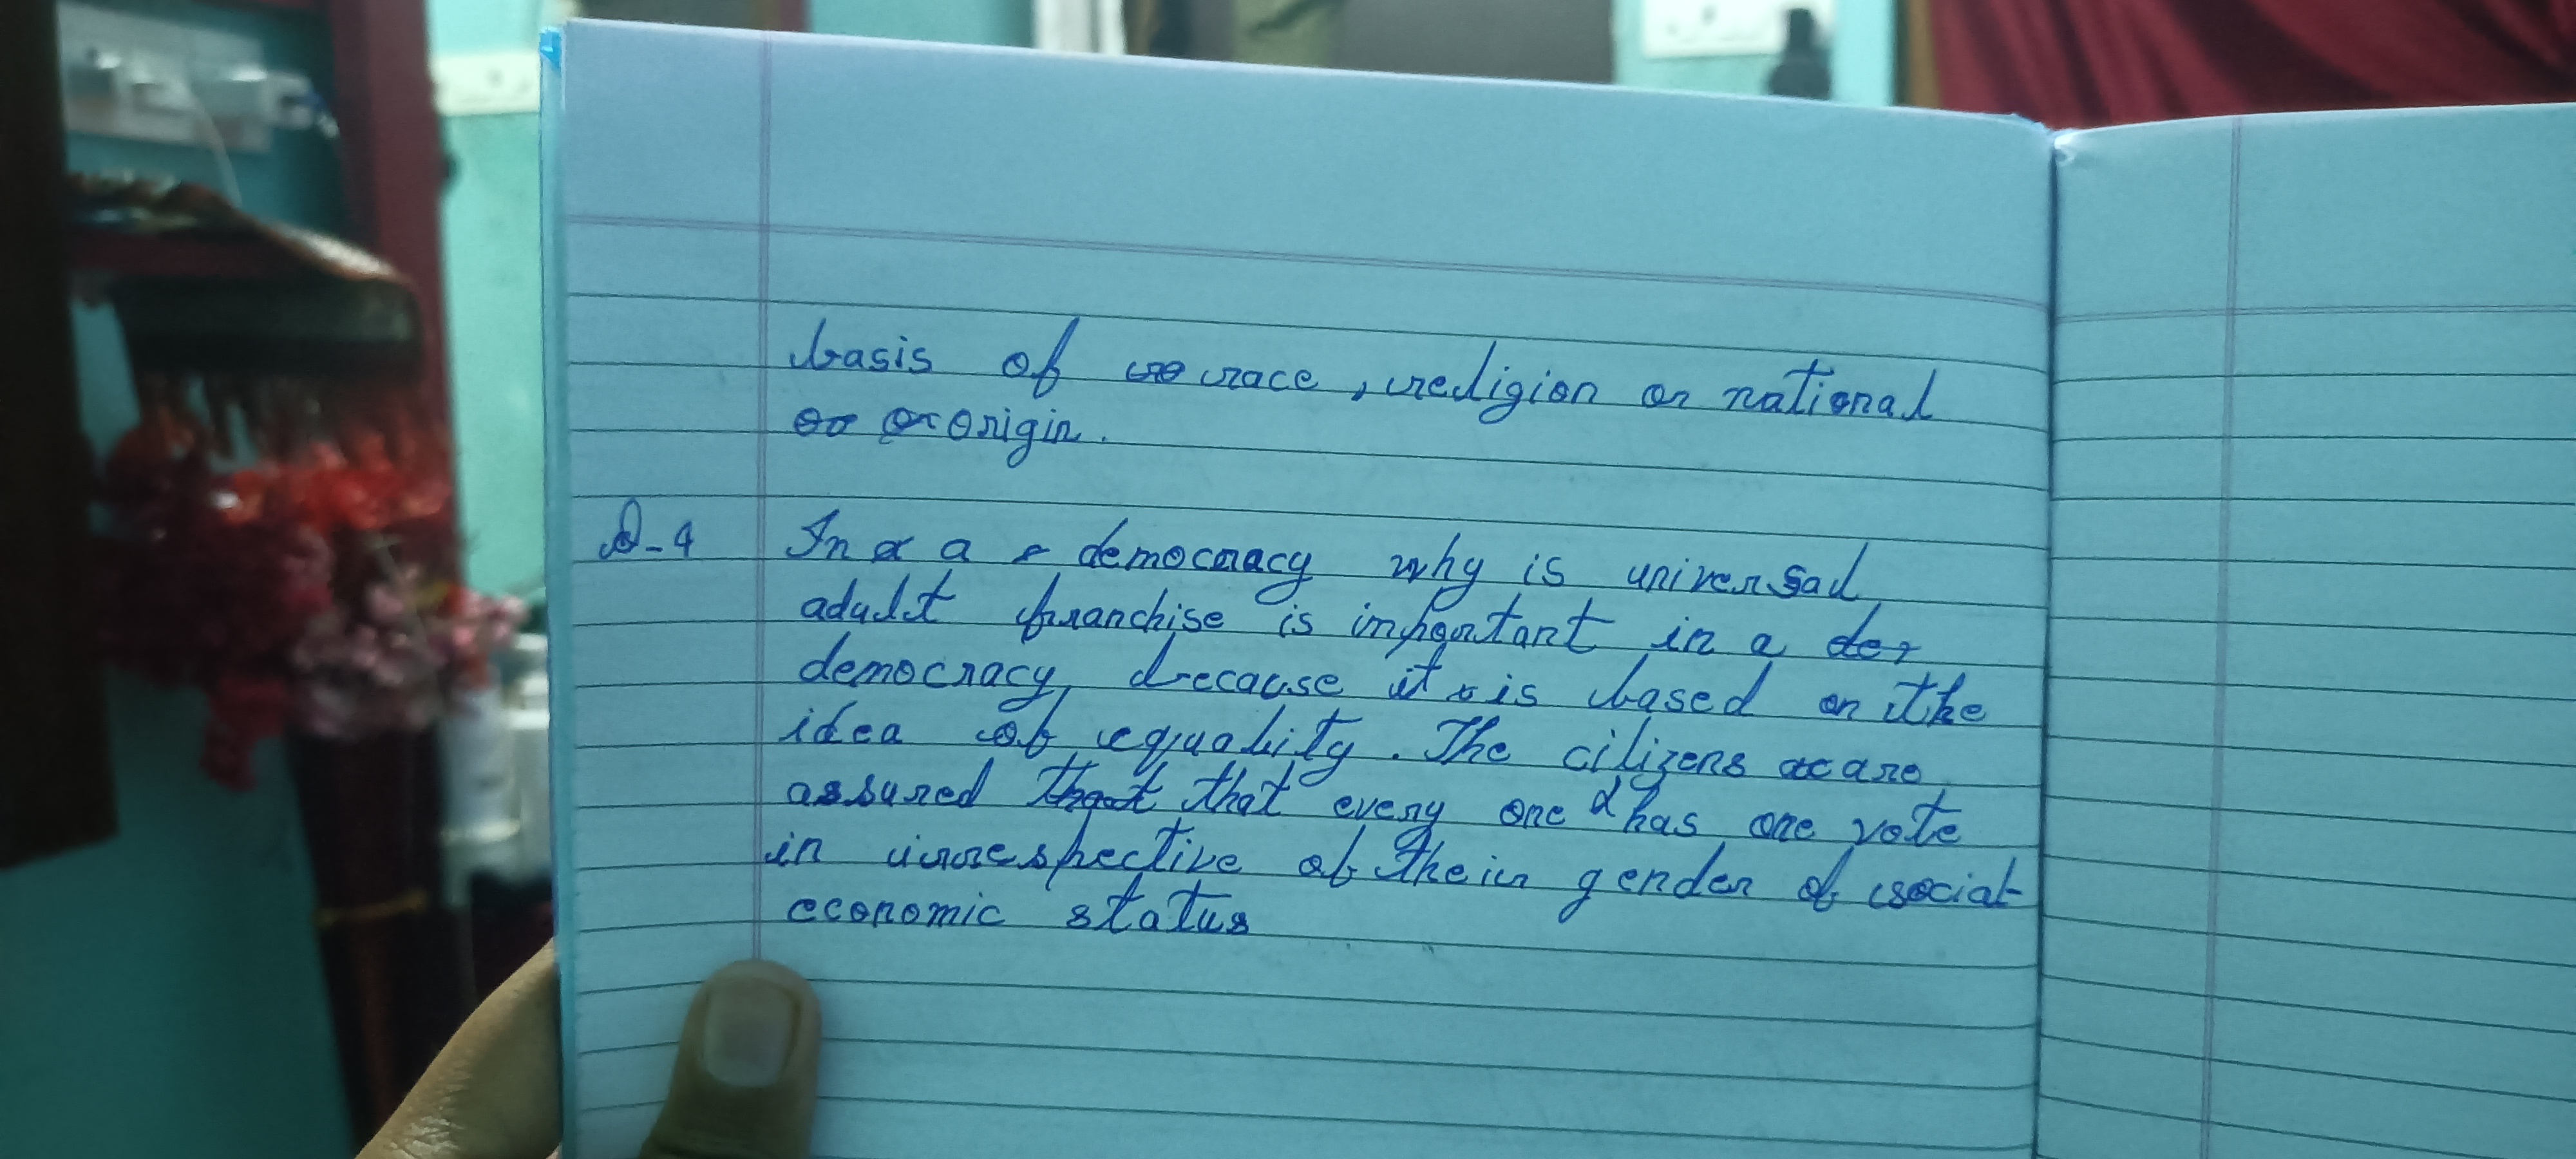 basis of race, religion or national
origin.
Q-4 In a democracy why is universal
adult franchise is important in a
democracy because it is based on the
idea of equality. The citizens are
assured that every one has one vote
in irrespective of their gender of social-
economic status